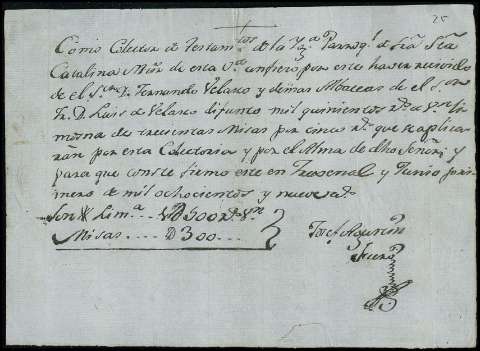 25
Como Colector de Testam.tos de la Yg.a Parroq.l de S.ta
Catalina Mār de esta V.a confieso por este haver recivido
de el S.or D. Fernando Velasco y demas Albaceas de el S.or
Fr. D. Luis de Velasco difunto mil quinientos r.s de v.on li
mosna de trescientas Misas por cinco r.s que se aplica
rán por esta Colecturia y por el Alma de dho Señor; y
para que conste firmo este en Fregenal y Junio pri
mero de mil ochocientos y nueve
Son Lim.a 1D500 r.s v.n
Misas .... D300 ...